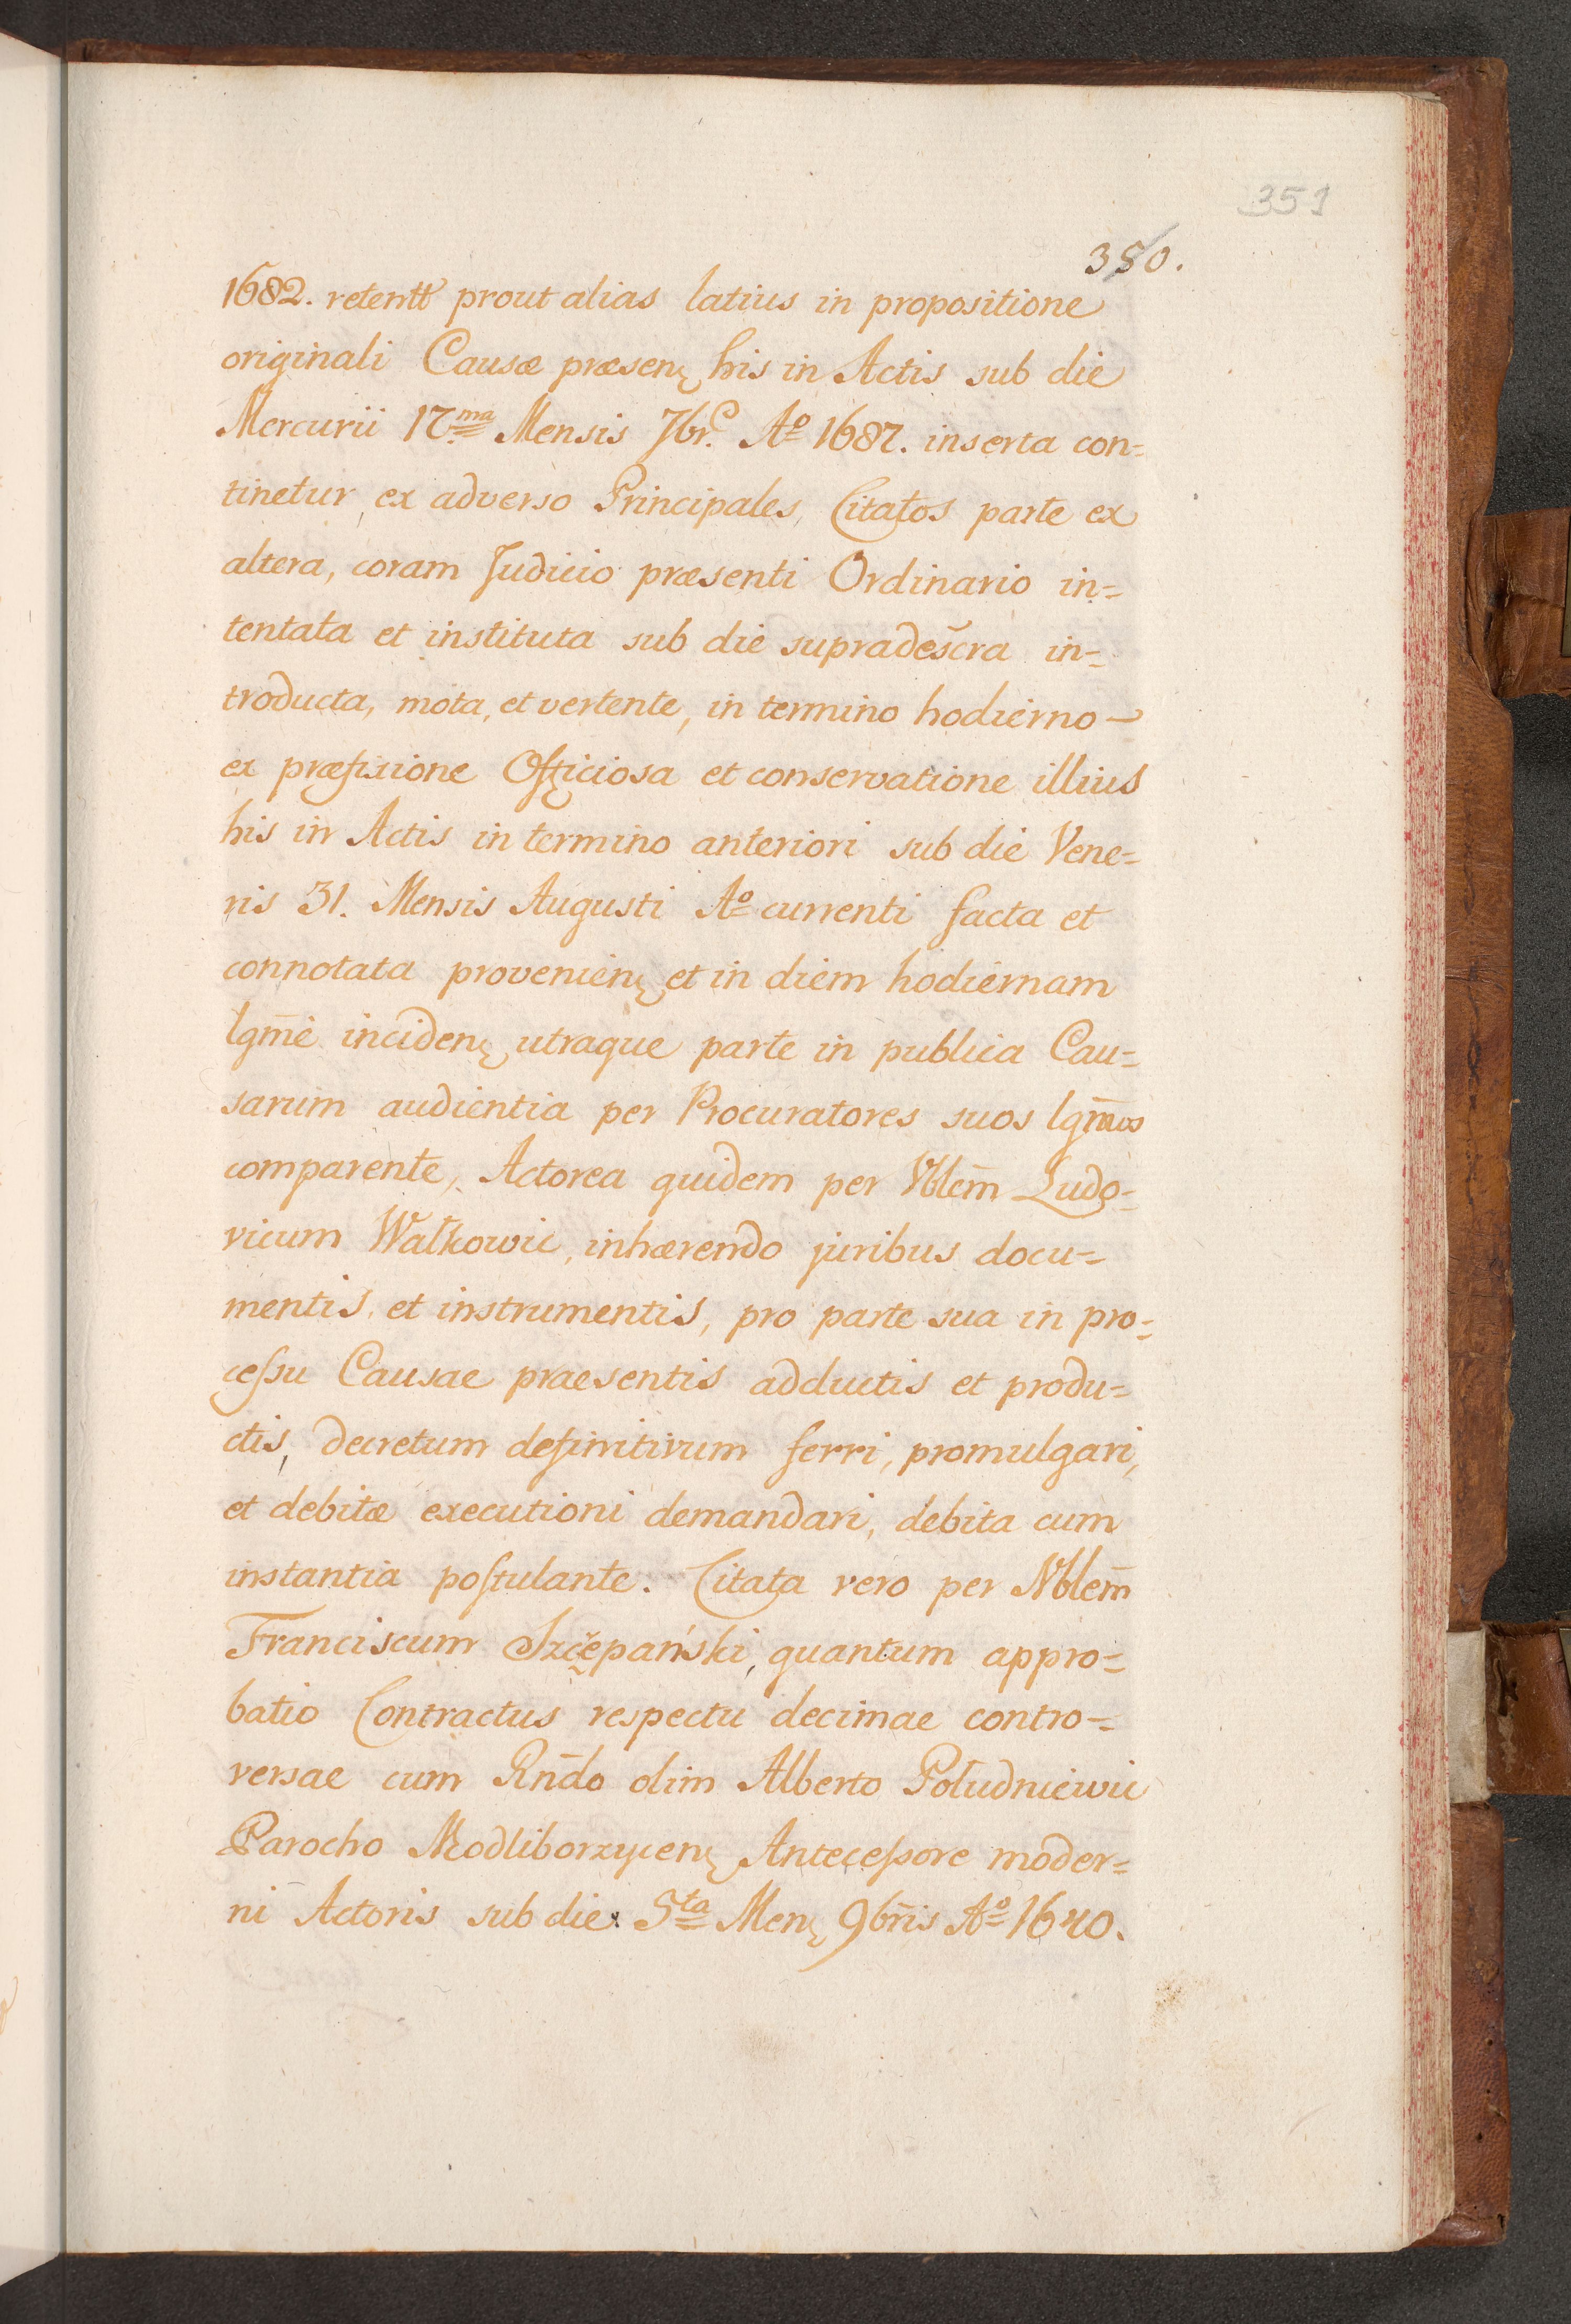 351
350.
1682. retentt prout alias latius in propositione
originali Causæ præsenę his in Actis sub die
Mercurii 17.ma Mensis 7br. Aº 1687. inserta con=
tinetur, ex adverso Principales, Citatos parte ex
altera, coram Judicio præsenti Ordinario in=
tentata et instituta sub die supradescra in=
troducta, mota, et vertente, in termino hodierno
ex præfixione Officiosa et conservatione illius
his in Actis in termino anteriori sub die Vene=
ris 31. Mensis Augusti Aº currenti facta et
connotata provenienę et in diem hodiernam
lgm̄e incidenę utraque parte in publica Cau=
sarum audientia per Procuratores suos lgm̄os
comparente, Actorea quidem per Nblem̄ Ludo=
vicum Wałkowic, inhærendo juribus docu=
mentis, et instrumentis, pro parte sua in pro=
cessu Causae praesentis adductis et produ=
ctis, decretum definitivum ferri, promulgari,
et debitæ executioni demandari, debita cum
instantia postulante. Citata vero per Nblem̄
Franciscum Szczepański, quantum appro=
batio Contractus respectu decimae contro=
versae cum Rn̄do olim Alberto Południewic
Parocho Modliborzycenę Antecessore moder=
ni Actoris sub die 5ta Menę 9bris Aº 1640.